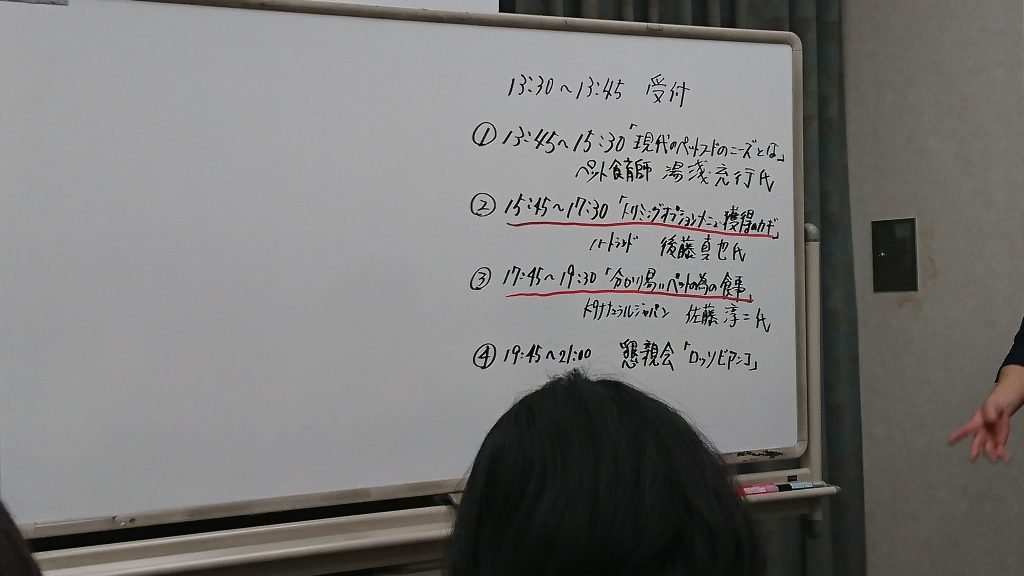 13:30〜13:45 受付
① 13:45〜15:30「現代のペットフードのニーズとは」
ペット食育師 湯浅充行氏
② 15:45〜17:30「トリミングオプションメニュー獲得のカギ」
ハートランド 後藤真也氏
③ 17:45〜19:30「分かり易いペットの為の食事」
ナチュラルジャパン 佐藤淳二氏
④ 19:45〜21:00 懇親会「ロッソビアンコ」